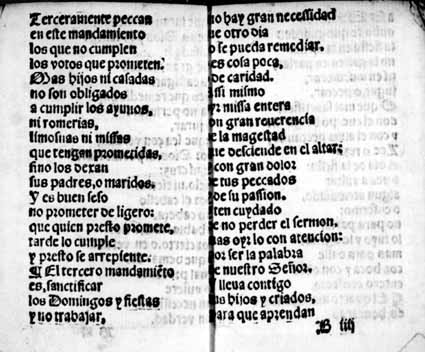 Terceramente peccan
en este mandamiento
los que no cumplen
los votos que prometen.
Mas hijos ni casadas
no son obligados
a cumplir los ayunos,
ni romerias,
limosnas ni missas
que tengan prometidas,
sino los dexan
sus padres, o maridos.
Y es buen seso
no prometer de ligero:
que quien presto promete,
tarde lo cumple
y presto se arrepiente.
¶ El tercero mandamiẽto
es, sanctificar
los Domingos y fiestas
y no trabajar,
no hay gran necessidad
ue otro dia
o se pueda remediar,
es cosa poca,
de caridad.
ssi mismo
r missa entera
on gran reuerencia
e la magestad
que desciende en el altar:
con gran dolor
e tus peccados
de su passion.
ten cuydado
e no perder el sermon,
mas oyr lo con atencion:
or ser la palabra
e nuestro Señor.
lleua contigo
us hijos y criados,
para que aprendan
B iiij